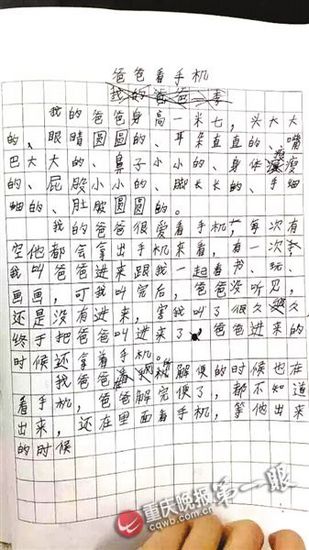 爸爸看手机
我的爸爸一李
我的爸爸身高一米七，头大大
的、眼睛圆圆的、耳朵直直的、嘴
巴大大的、鼻子小小的、身体瘦瘦
的、屁股小小的、脚长长的、手细
细的、肚脸圆圆的。
我的爸爸很爱看手机，每次有
空他都会拿出手机来看，有一次
我叫爸爸进来跟我一起看书、玩、
画画，可我叫完后，爸爸没听见，
还是没有进来，害我叫了很久
终于把爸爸叫进来了 爸爸进来的
时候还拿着手机。
我爸爸 解便的时候也在
看手机，爸爸解完便了，都不知道
出来，还在里面看手机，等他出来
的时候
重庆晚报第一眼
cqwb.com.cn